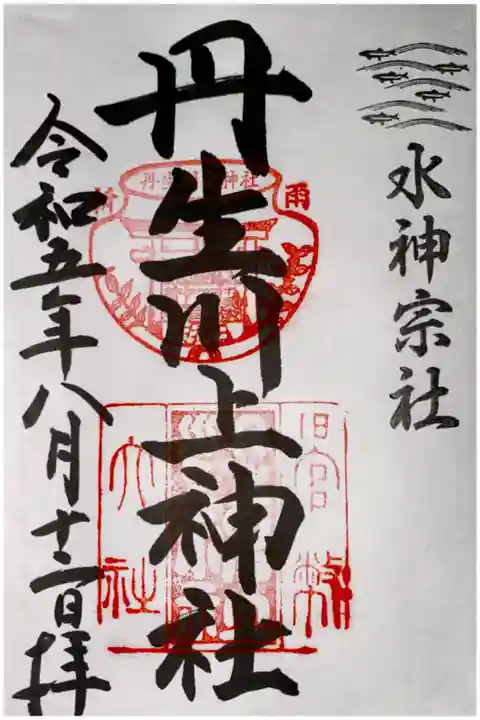 水神宗社
丹生川上神社
神社
雨
旧官幣
大社
令和五年八月十二日拝